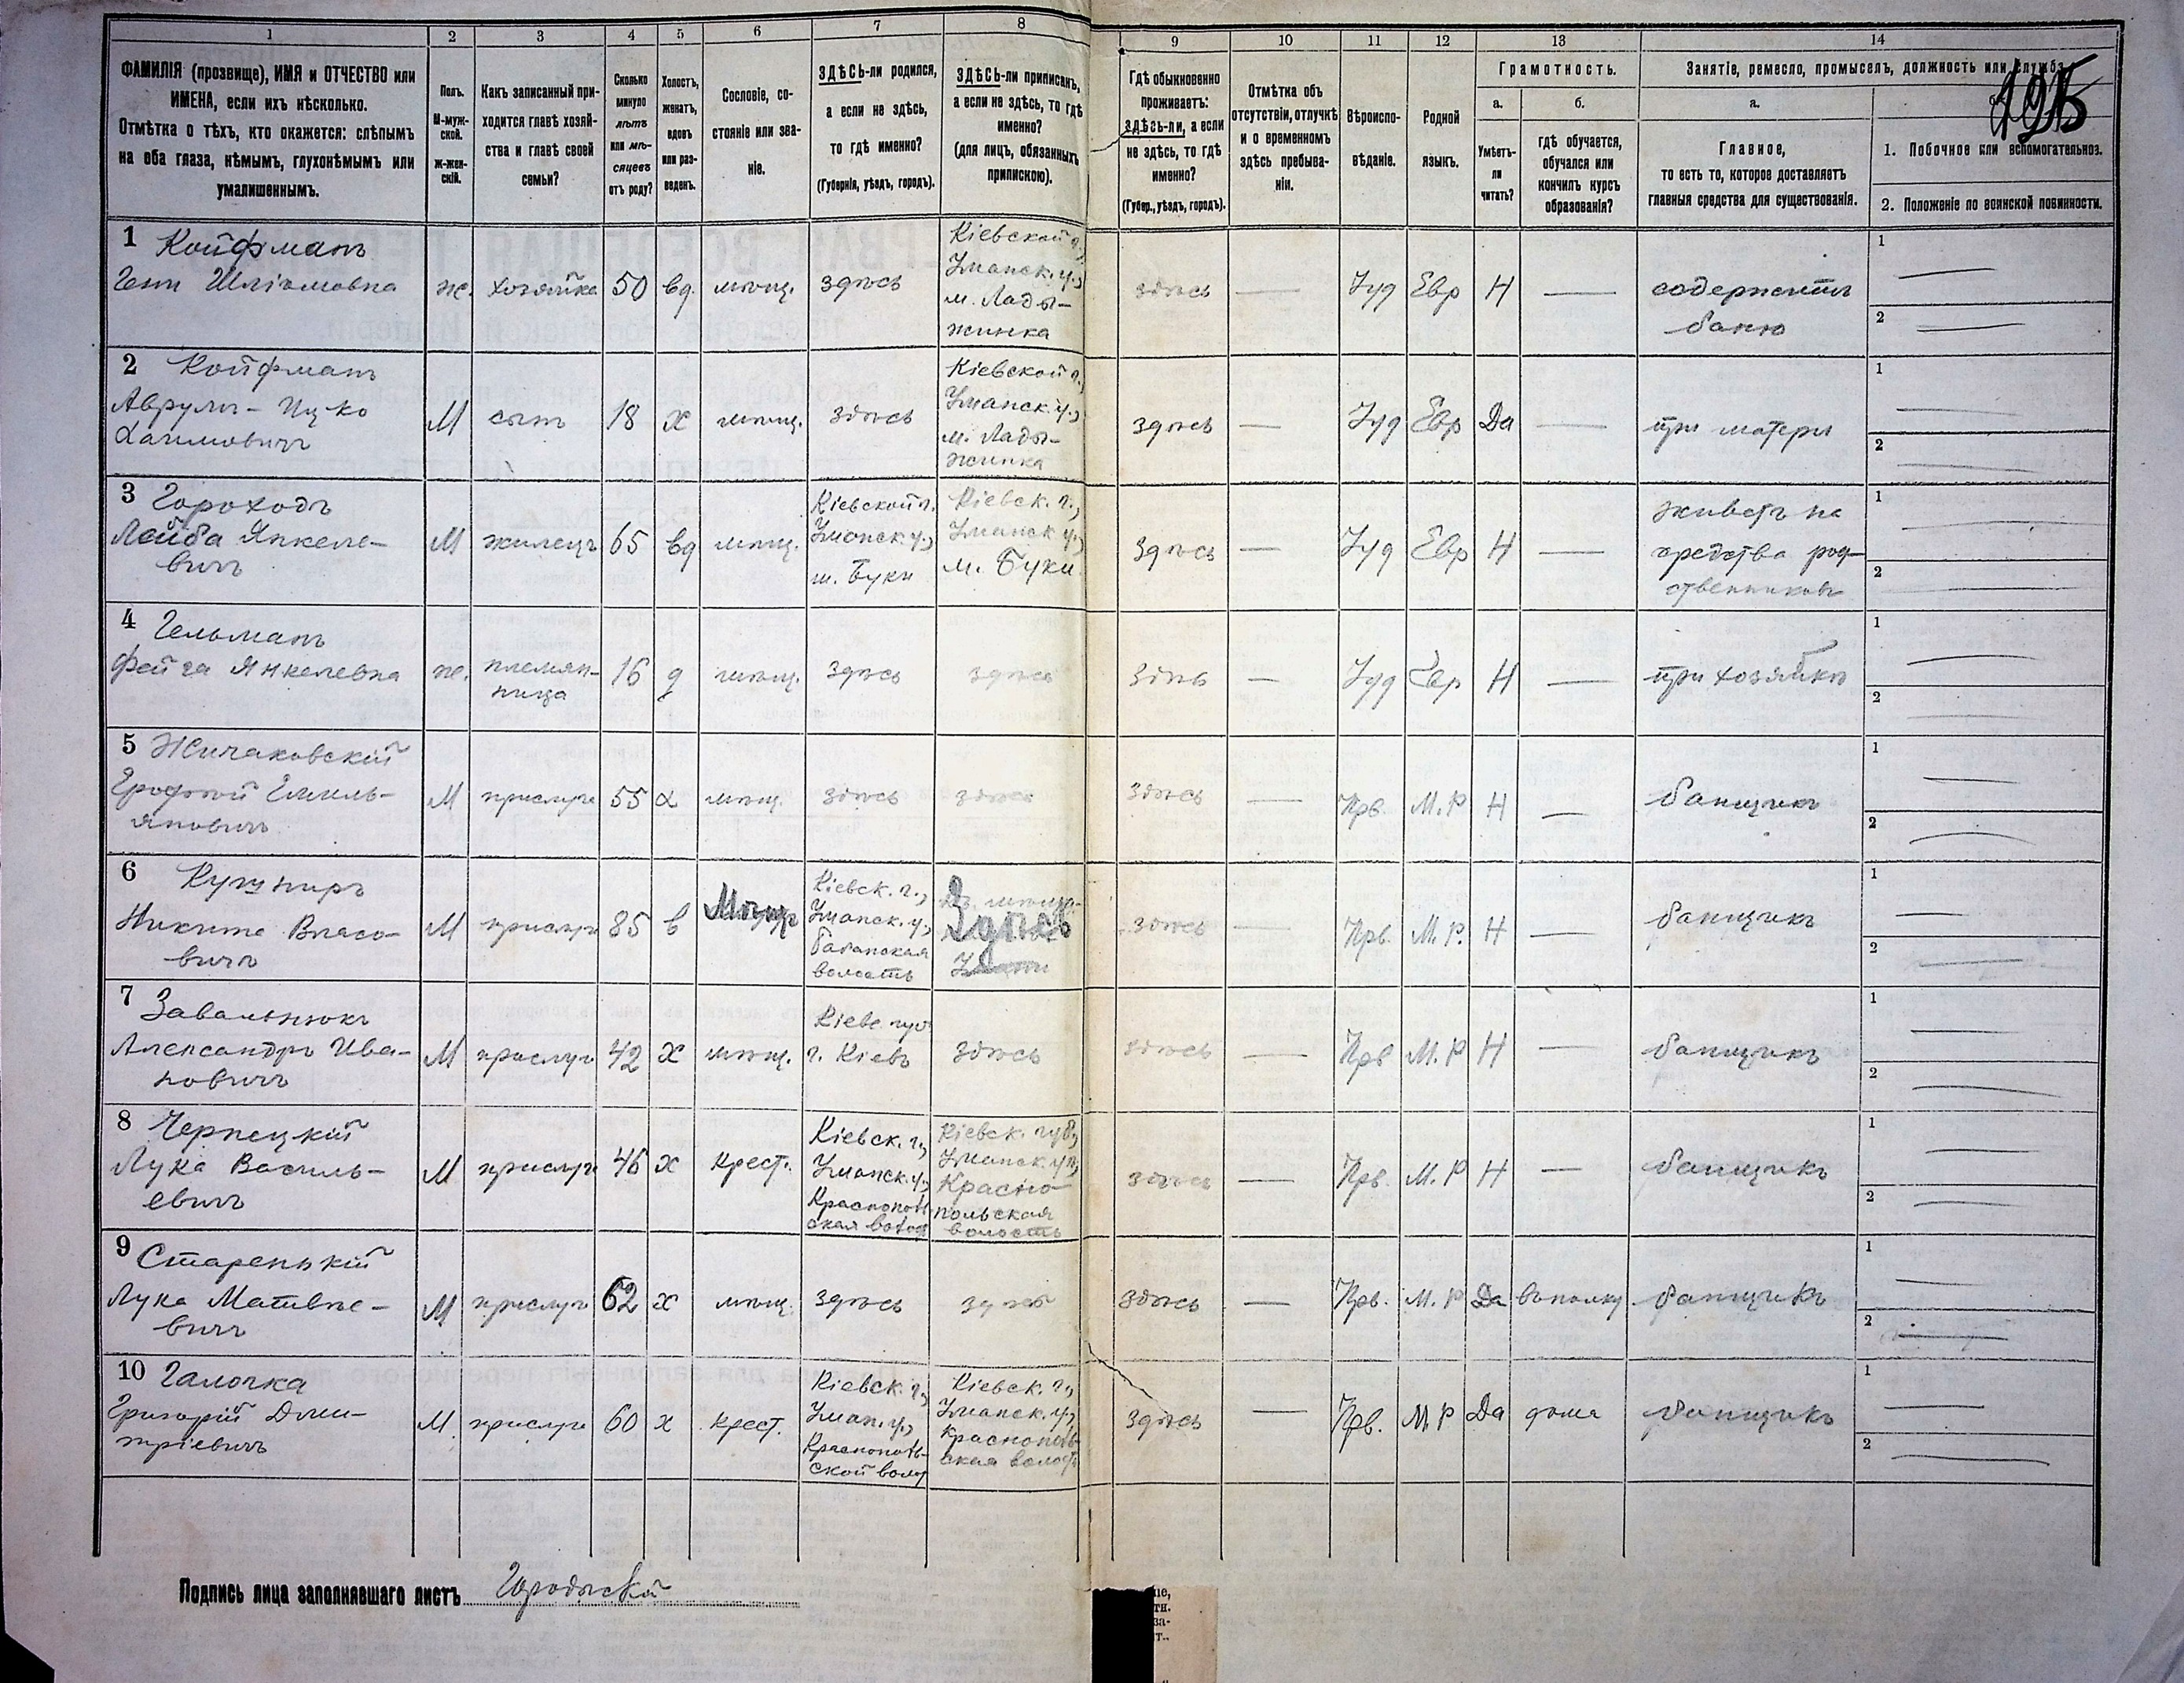 1 2 3 4 5 6 7 8 9 10 11 12 13 14
ФАМИЛІЯ (прозвище), ИМЯ и ОТЧЕСТВО или
ИМЕНА, если ихъ нѣсколько.
Отмѣтка о тѣхъ, кто окажется: слѣпымъ
на оба глаза, нѣмымъ, глухонѣмымъ или
умалишеннымъ.
Полъ.
М-муж-
ской.
Ж-жен-
скій.
Какъ записанный при-
ходится главѣ хозяй-
ства и главѣ своей
семьи?
Сколько
минуло
лѣтъ
или мѣ-
сяцевъ
отъ роду?
Холостъ,
женатъ,
вдовъ
или раз-
веденъ.
Сословіе, со-
стояніе или зва-
ніе.
ЗДѢСЬ-ли родился,
а если не здѣсь,
то гдѣ именно?
(Губернія, уѣздъ, городъ).
ЗДѢСЬ-ли приписанъ,
а если не здѣсь, то гдѣ
именно?
(для лицъ, обязанныхъ
припискою).
Гдѣ обыкновенно
проживаетъ:
ЗДѢСЬ-ли, а если
не здѣсь, то гдѣ
именно?
(Губер., уѣздъ, городъ).
Отмѣтка объ
отсутствіи, отлучкѣ
и о временномъ
здѣсь пребыва-
ніи.
Вѣроиспо-
вѣданіе.
Родной
языкъ.
Грамотность.
а.
Умѣетъ-
ли
читать?
б.
гдѣ обучается,
обучался или
кончилъ курсъ
образованія?
Занятіе, ремесло, промыселъ, должность или служба.
а.
Главное,
то есть то, которое доставляетъ
главныя средства для существованія.
1. Побочное или вспомогательное.
2. Положеніе по воинской повинности.
1 Койфманъ
Гени Шліомовна
ж. хозяйка 50 вд. мѣщ. здѣсь
Кіевской г.,
Уманск. у.,
м. Лады-
жинка
здѣсь — Іуд Евр Н —
содержитъ
баню
1 —
2 —
2 Койфманъ
Аврумъ-Ицко
Хаимовичъ
М сынъ 18 х мѣщ. здѣсь
Кіевской г.,
Уманск. у.,
м. Лады-
жинка
здѣсь — Іуд Евр Да — при матери
1 —
2 —
3 Гороходъ
Лейба Янкеле-
вичъ
М жилецъ 65 вд мѣщ.
Кіевской г.
Уманск. у.,
м. Буки
Кіевск. г.,
Уманск у.,
м. Буки
здѣсь — Іуд Евр Н —
живетъ на
средства род-
ственниковъ
1 —
2 —
4 Гельманъ
Фейга Янкелевна
ж. племян-
ница
16 д мѣщ. здѣсь здѣсь здѣсь — Іуд Евр Н — при хозяйкѣ
1 —
2 —
5
Ерофей Емиль-
яновичъ
М прислуга 55 х мѣщ. здѣсь здѣсь здѣсь — Прв. М.Р Н — банщикъ
1 —
2 —
6 Кушниръ
Никита Власо-
вичъ
М прислуг 85 в Мѣщ
Кіевск. г.,
Уманск. у.,
волость
Здѣсь
здѣсь — Прв. М.Р. Н — банщикъ
1 —
2 —
7 Завальнюкъ
Александръ Ива-
новичъ
М прислуг 42 х мѣщ.
Кіевс. губ
г. Кіевъ
здѣсь здѣсь — Прв М.Р Н — банщикъ
1 —
2 —
8 Чернецкій
Лука Василь-
евичъ
М прислуг 46 х крест.
Кіевск. г.,
Уманск. у.,
Краснополь
ская волост
Кіевск. губ,
Уманск. у,
Красно-
польская
волость
здѣсь — Прв. М.Р Н — банщикъ
1 —
2 —
9 Старенькій
Лука Матвѣе-
вичъ
М прислуг 62 х мѣщ. здѣсь здѣсь здѣсь — Прв. М.Р Да вополку. банщикъ
1 —
2 —
10 Галочка
Григорій Дми-
тріевичъ
М. прислуг 60 х крест.
Кіевск. г.,
Уман. у.,
Краснополь-
ской волос
Кіевск. г.,
Уманск. у,
Краснополь-
ская волост
здѣсь — Прв. М Р Да дома банщикъ
1 —
2 —
Подпись лица заполнявшаго листъ